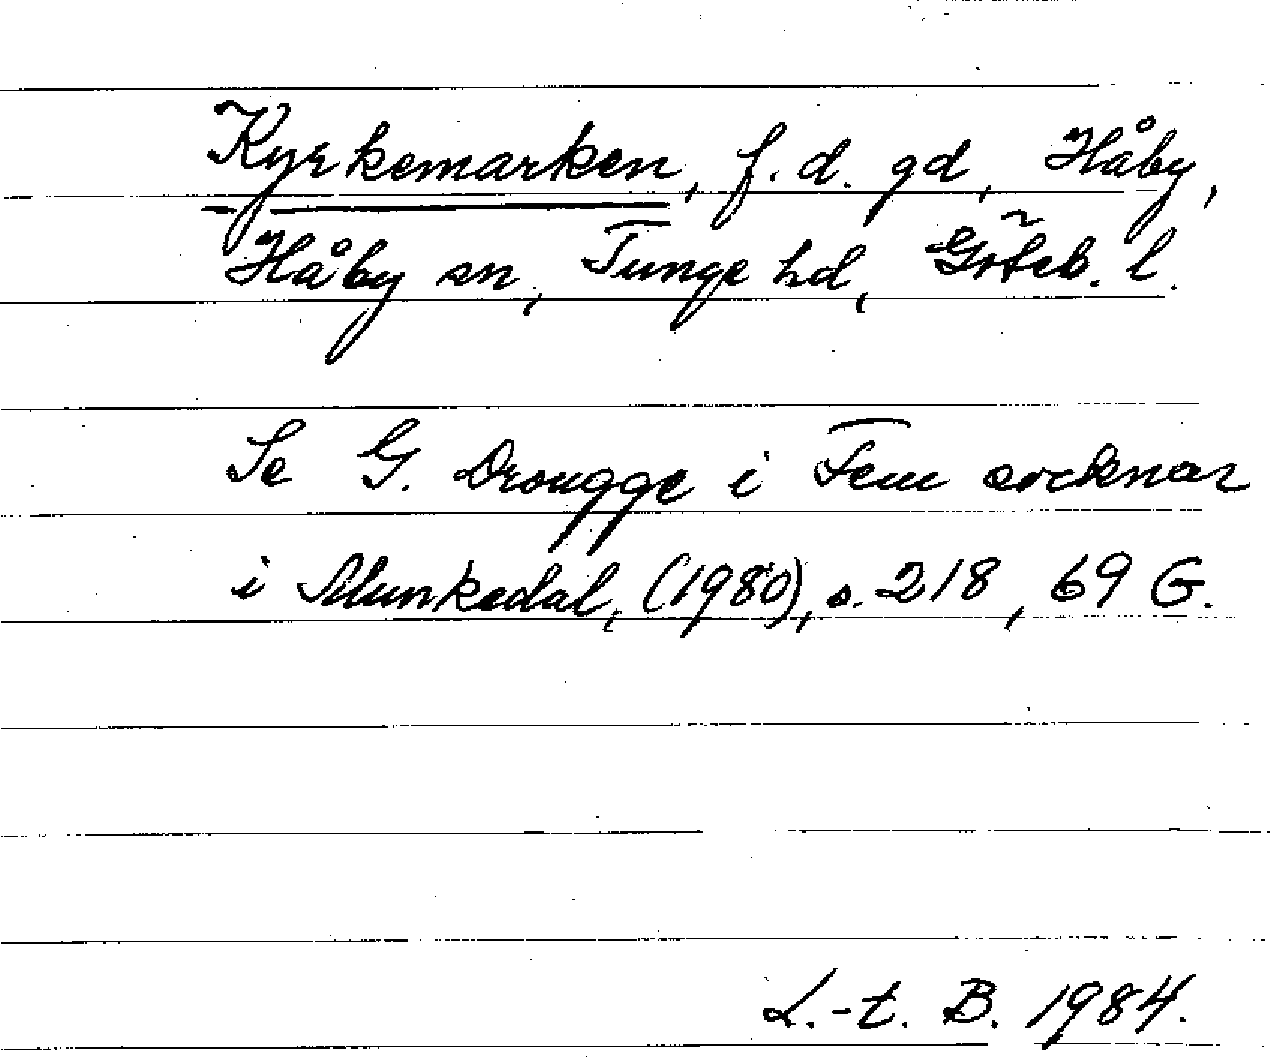 Kyrkemarken, f.d. gd, Håby,
Håby sn, Tunge hd, Göteb. l.
Se G. Drougge i Fem socknar
i Munkedal, (1980), s. 218, 69 G.
L.-t. B. 1984.